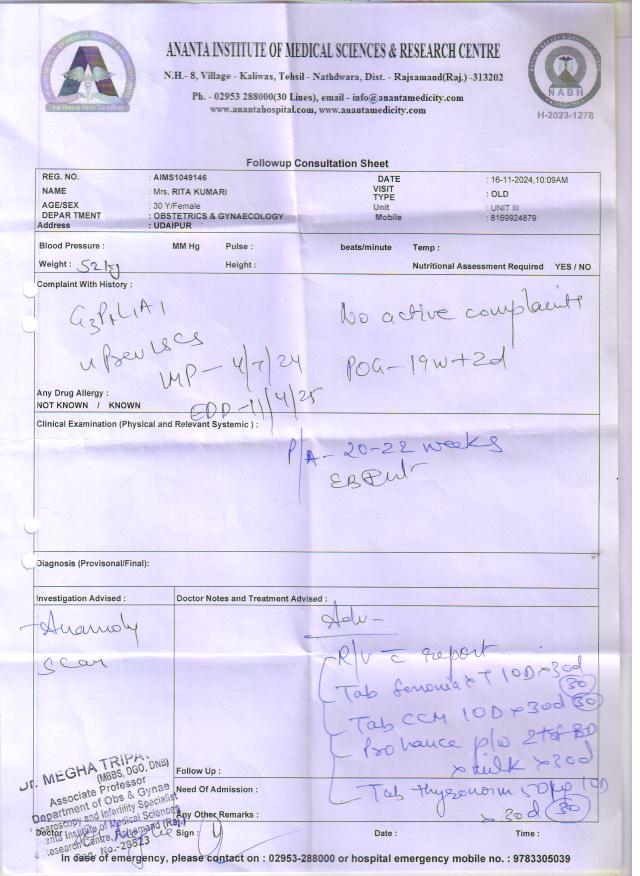 ANANTA INSTITUTE OF MEDICAL SCIENCES & RESEARCH CENTRE
N.H.- 8, Village - Kaliwas, Tehsil - Nathdwara, Dist. - Rajsamand(Raj.) -313202
Ph. - 02953 288000(30 Lines), email - info@anantamedicity.com
www.anantahospital.com, www.anantamedicity.com
NABH
H-2023-1278
Followup Consultation Sheet
REG. NO. : AIMS1049146 DATE : 16-11-2024,10:09AM
NAME : Mrs. RITA KUMARI VISIT TYPE : OLD
AGE/SEX : 30 Y/Female Unit : UNIT III
DEPARTMENT : OBSTETRICS & GYNAECOLOGY Mobile : 8169924879
Address : UDAIPUR
Blood Pressure : MM Hg Pulse : beats/minute Temp :
Weight : 52kg Height : Nutritional Assessment Required YES / NO
Complaint With History :
G3P1L1A1 No active complaints
LMP - 4/7/24 POG - 19w+2d
EDD - 11/4/25
Any Drug Allergy :
NOT KNOWN / KNOWN
Clinical Examination (Physical and Relevant Systemic ) :
P/A - 20-22 weeks
Diagnosis (Provisonal/Final):
Investigation Advised : Doctor Notes and Treatment Advised :
Anamoly
Scan
Adv -
R/V c̄ report
Tab XT 10D x 30d (30)
Tab CCM 10D x 30d (30)
Prohance p/w BD
x milk x 30d
Tab thyronorm 50µg 10D
x 30d (30)
Follow Up :
Need Of Admission :
Any Other Remarks :
Doctor Sign : Date : Time :
Dr. MEGHA TRIPA
(MBBS, DGO, DNB)
Associate Professor
Department of Obs & Gynae
aroscopy and Infertility Specialist
anta Institute of Medical Sciences
esearch Centre, Rajsamand (Raj.)
No.-28523
In case of emergency, please contact on : 02953-288000 or hospital emergency mobile no. : 9783305039